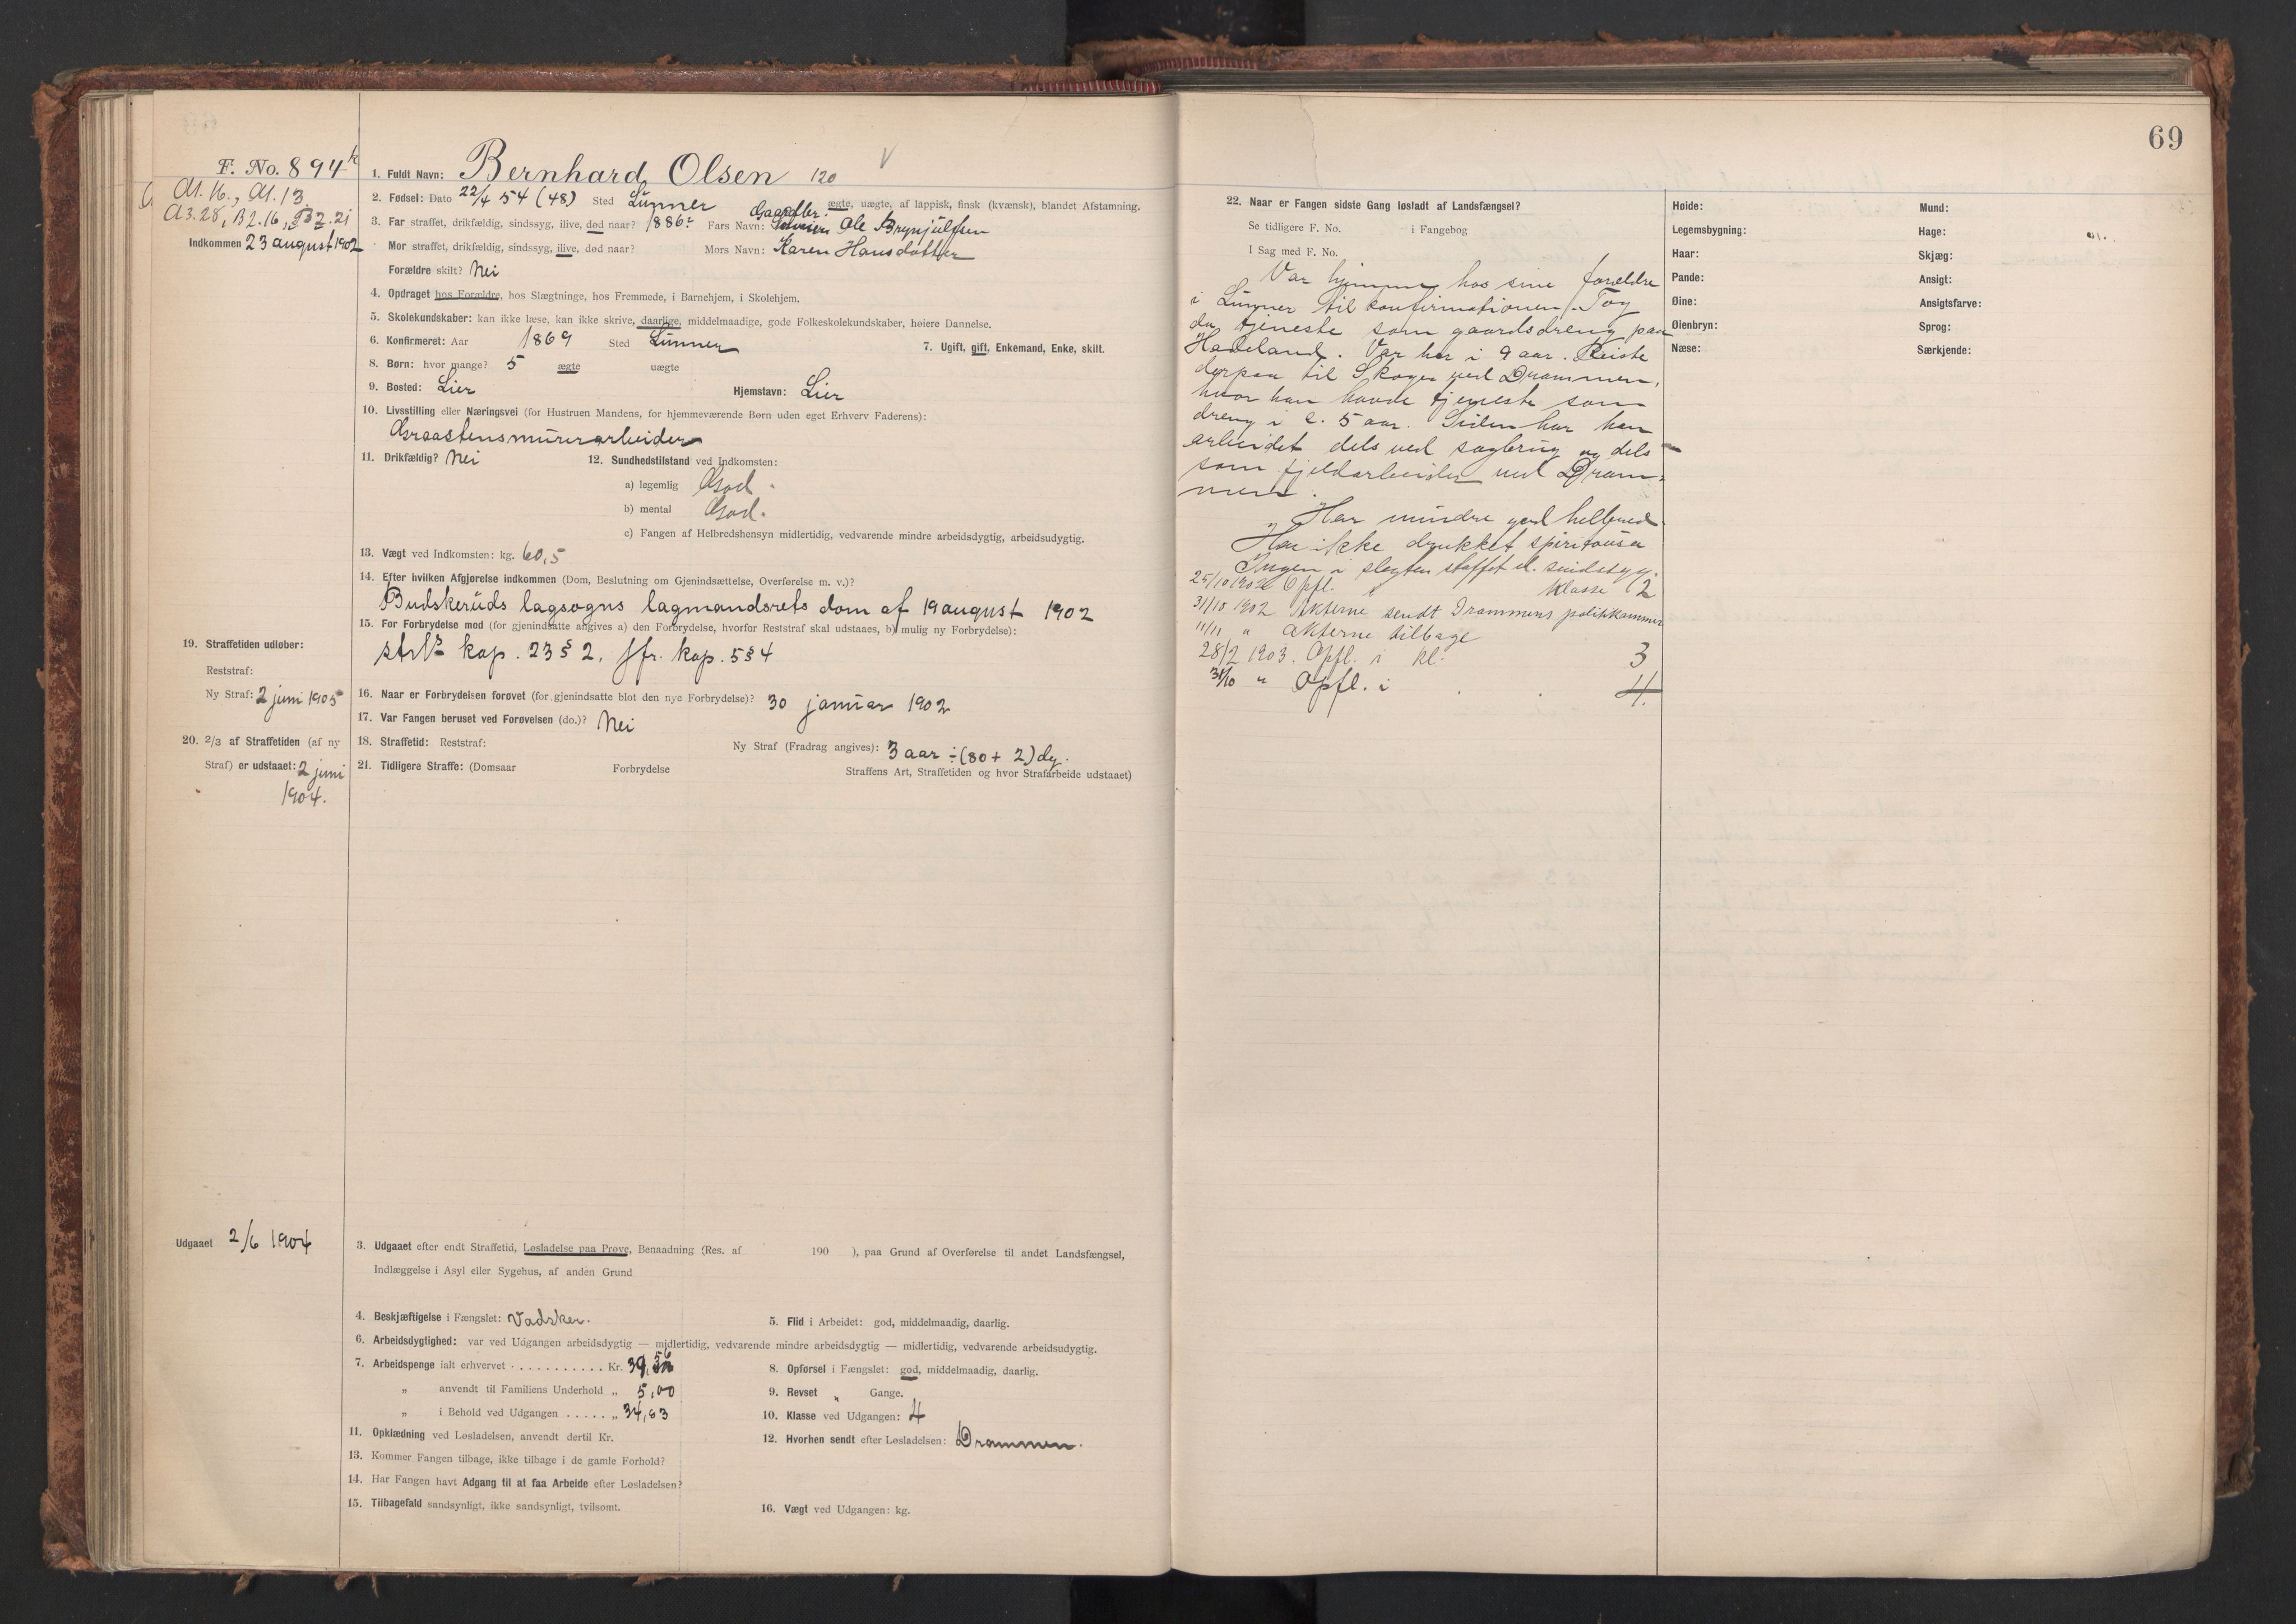 F. No. 894 k
A1.16., A1.13
A3.28, B2.16, B2.21
Indkommen 23 august 1902
1. Fuldt Navn: Bernhard Olsen 120
2. Fødsel: Dato 22/4 54 (48) Sted Lunner ægte, uægte, af lappisk, finsk (kvænsk), blandet Afstamning.
3. Far straffet, drikfældig, sindssyg, ilive, død naar? 1886. Fars Navn: Gaardbr. Ole Brynjulfsen
Mor straffet, drikfældig, sindssyg, ilive, død naar? Mors Navn: Karen Hansdatter
Forældre skilt? Nei
4. Opdraget hos Forældre, hos Slægtninge, hos Fremmede, i Barnehjem, i Skolehjem.
5. Skolekundskaber: kan ikke læse, kan ikke skrive, daarlige, middelmaadige, gode Folkeskolekundskaber, høiere Dannelse.
6. Konfirmeret: Aar 1869 Sted Lunner 7. Ugift, gift, Enkemand, Enke, skilt.
8. Børn: hvor mange? 5 ægte uægte
9. Bosted: Lier Hjemstavn: Lier
10. Livsstilling eller Næringsvei (for Hustruen Mandens, for hjemmeværende Børn uden eget Erhverv Faderens):
Graastensmurerarbeider
11. Drikfældig? Nei 12. Sundhedstilstand ved Indkomsten:
a) legemlig God.
b) mental God.
c) Fangen af Helbredshensyn midlertidig, vedvarende mindre arbeidsdygtig, arbeidsudygtig.
13. Vægt ved Indkomsten: kg. 60,5
14. Efter hvilken Afgjørelse indkommen (Dom, Beslutning om Gjenindsættelse, Overførelse m. v.)?
Budskeruds lagsogns lagmandsrets dom af 19 august 1902
15. For Forbrydelse mod (for gjenindsatte angives a) den Forbrydelse, hvorfor Reststraf skal udstaaes, b) mulig ny Forbrydelse):
strl. kap. 23 § 2, jfr. kap. 5 § 4
19. Straffetiden udløber:
Reststraf:
Ny Straf: 2 juni 1905
16. Naar er Forbrydelsen forøvet (for gjenindsatte blot den nye Forbrydelse)? 30 januar 1902
17. Var Fangen beruset ved Forøvelsen (do.)? Nei
20. 2/3 af Straffetiden (af ny
Straf) er udstaaet: 2 juni
1904.
18. Straffetid: Reststraf: Ny Straf (Fradrag angives): 3 aar ÷ (80 + 2) dg.
21. Tidligere Straffe: (Domsaar Forbrydelse Straffens Art, Straffetiden og hvor Strafarbeide udstaaet)
Udgaaet 2/6 1904
3. Udgaaet efter endt Straffetid, Løsladelse paa Prøve, Benaadning (Res. af 190 ), paa Grund af Overførelse til andet Landsfængsel,
Indlæggelse i Asyl eller Sygehus, af anden Grund
4. Beskjæftigelse i Fængslet: Vadsker. 5. Flid i Arbeidet: god, middelmaadig, daarlig.
6. Arbeidsdygtighed: var ved Udgangen arbeidsdygtig — midlertidig, vedvarende mindre arbeidsdygtig — midlertidig, vedvarende arbeidsudygtig.
7. Arbeidspenge ialt erhvervet . . . . . . . . . . . Kr. 39,56 8. Opførsel i Fængslet: god, middelmaadig, daarlig.
„ anvendt til Familiens Underhold „ 5,00 9. Revset „ Gange.
„ i Behold ved Udgangen . . . . . „ 34,63 10. Klasse ved Udgangen: 4
11. Opklædning ved Løsladelsen, anvendt dertil Kr. 12. Hvorhen sendt efter Løsladelsen: Drammen.
13. Kommer Fangen tilbage, ikke tilbage i de gamle Forhold?
14. Har Fangen havt Adgang til at faa Arbeide efter Løsladelsen?
15. Tilbagefald sandsynligt, ikke sandsynligt, tvilsomt. 16. Vægt ved Udgangen: kg.
69
22. Naar er Fangen sidste Gang løsladt af Landsfængsel?
Se tidligere F. No. i Fangebog
I Sag med F. No.
Var hjemme hos sine forældre
i Lunner til konfirmationen. Tog
da tjeneste som gaardsdreng paa
Hadeland. Var her i 9 aar. Reiste
derpaa til Skoger ved Drammen,
hvor han havde tjeneste som
dreng i c. 5 aar. Siden har han
arbeidet dels ved sagbrug og dels
som fjeldarbeider ved Dram-
men.
Har mindre god helbred.
Har ikke drukket spirituosa
Ingen i slegten straffet el. sindssyg.
25/10 1902 Opfl. i klasse 2
31/10 1902 Akterne sendt Drammens politikammer
11/11 " Akterne tilbage
28/2 1903. Opfl. i kl. 3
31/10 " Opfl. i . . 4.
Høide:
Legemsbygning:
Haar:
Pande:
Øine:
Øienbryn:
Næse:
Mund:
Hage:
Skjæg:
Ansigt:
Ansigtsfarve:
Sprog:
Særkjende: